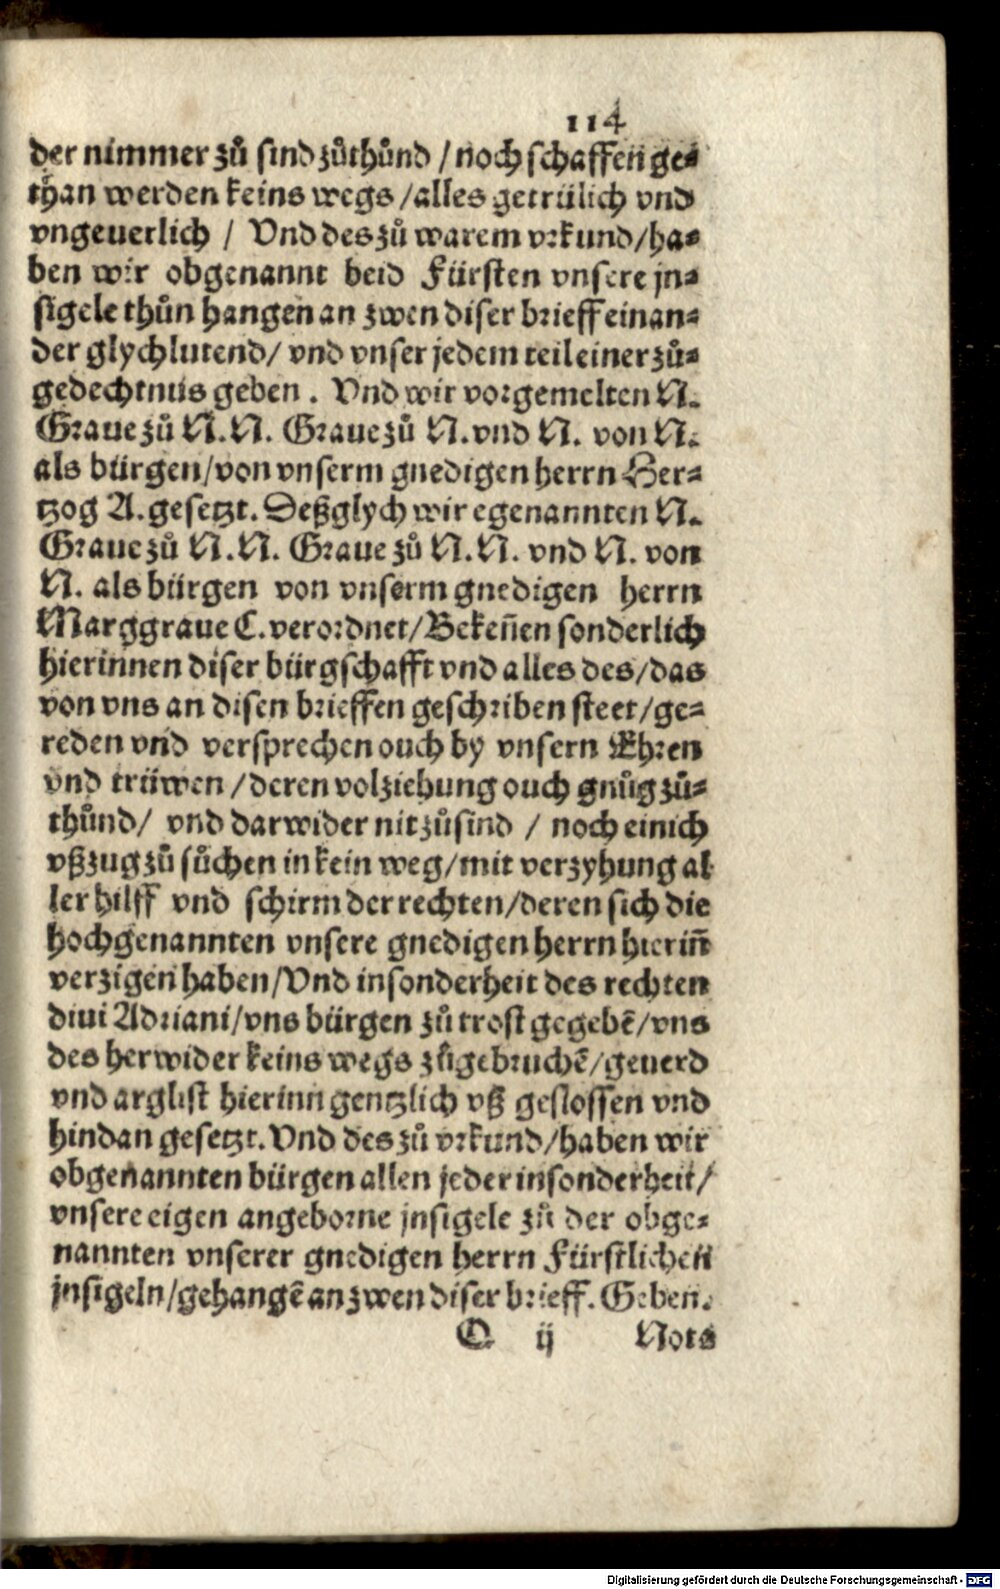 114
der nimmer zů sind zůthůnd / noch schaffen ge⸗
than werden keins wegs / alles getrülich vnd
vngeuerlich / Vnd des zů warem vrkund / ha⸗
ben wir obgenannt beid Fürsten vnsere jn⸗
sigele thůn hangen an zwen diser brieff einan⸗
der glychlutend / vnd vnser jedem teil einer zů⸗
gedechtnus geben . Vnd wir vorgemelten N.
Graue zů N.N. Graue zů N. vnd N. von N.
als bürgen / von vnserm gnedigen herrn Her⸗
tzog A. gesetzt. Deßglych wir egenannten N.
Graue zů N.N. Graue zů N.N. vnd N. von
N. als bürgen von vnserm gnedigen herrn
Marggraue C. verordnet / Bekeñen sonderlich
hierinnen diser bürgschafft vnd alles des / das
von vns an disen brieffen geschriben steet / ge⸗
reden vnd versprechen ouch by vnsern Ehren
vnd trüwen / deren volziehung ouch gnůg zů⸗
thůnd / vnd darwider nit zůsind / noch einich
vßzug zů sůchen in kein weg / mit verzyhung al
ler hilff vnd schirm der rechten / deren sich die
hochgenannten vnsere gnedigen herrn hieriñ
verzigen haben / Vnd insonderheit des rechten
diui Adriani / vns bürgen zů trost gegebē / vns
des herwider keins wegs zůgebruchē / geuerd
vnd arglist hierinn gentzlich vß geslossen vnd
hindan gesetzt. Vnd des zů vrkund / haben wir
obgenannten bürgen allen jeder insonderheit /
vnsere eigen angeborne jnsigele zů der obge⸗
nannten vnserer gnedigen herrn Fürstlichen
jnsigeln / gehangē an zwen diser brieff. Geben.
Q ij Nota
Digitalisierung gefördert durch die Deutsche Forschungsgemeinschaft - DFG